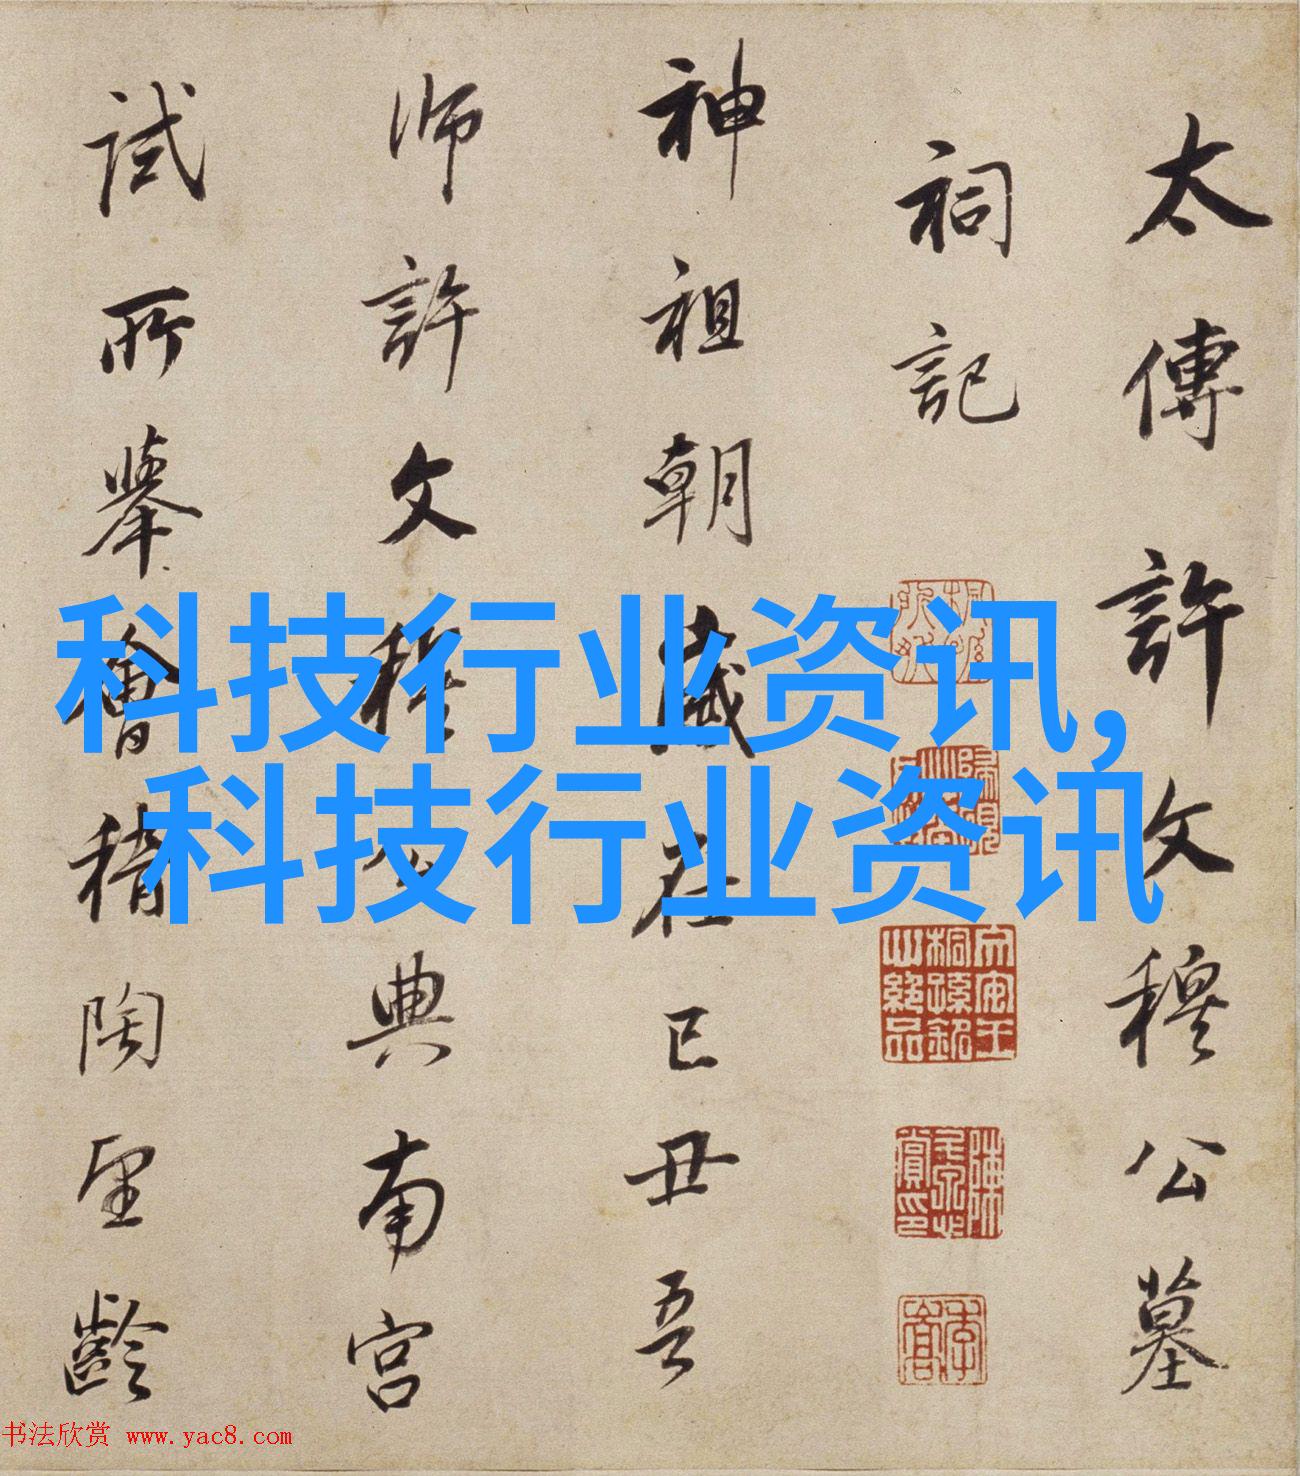 太傅許文穆公墓
祠記
神祖朝歲在己丑吾
師許文穆公典南宮
試所舉會稽陶望齡
科技行业资讯,
科技行业资讯
书法欣赏 www.yac8.com